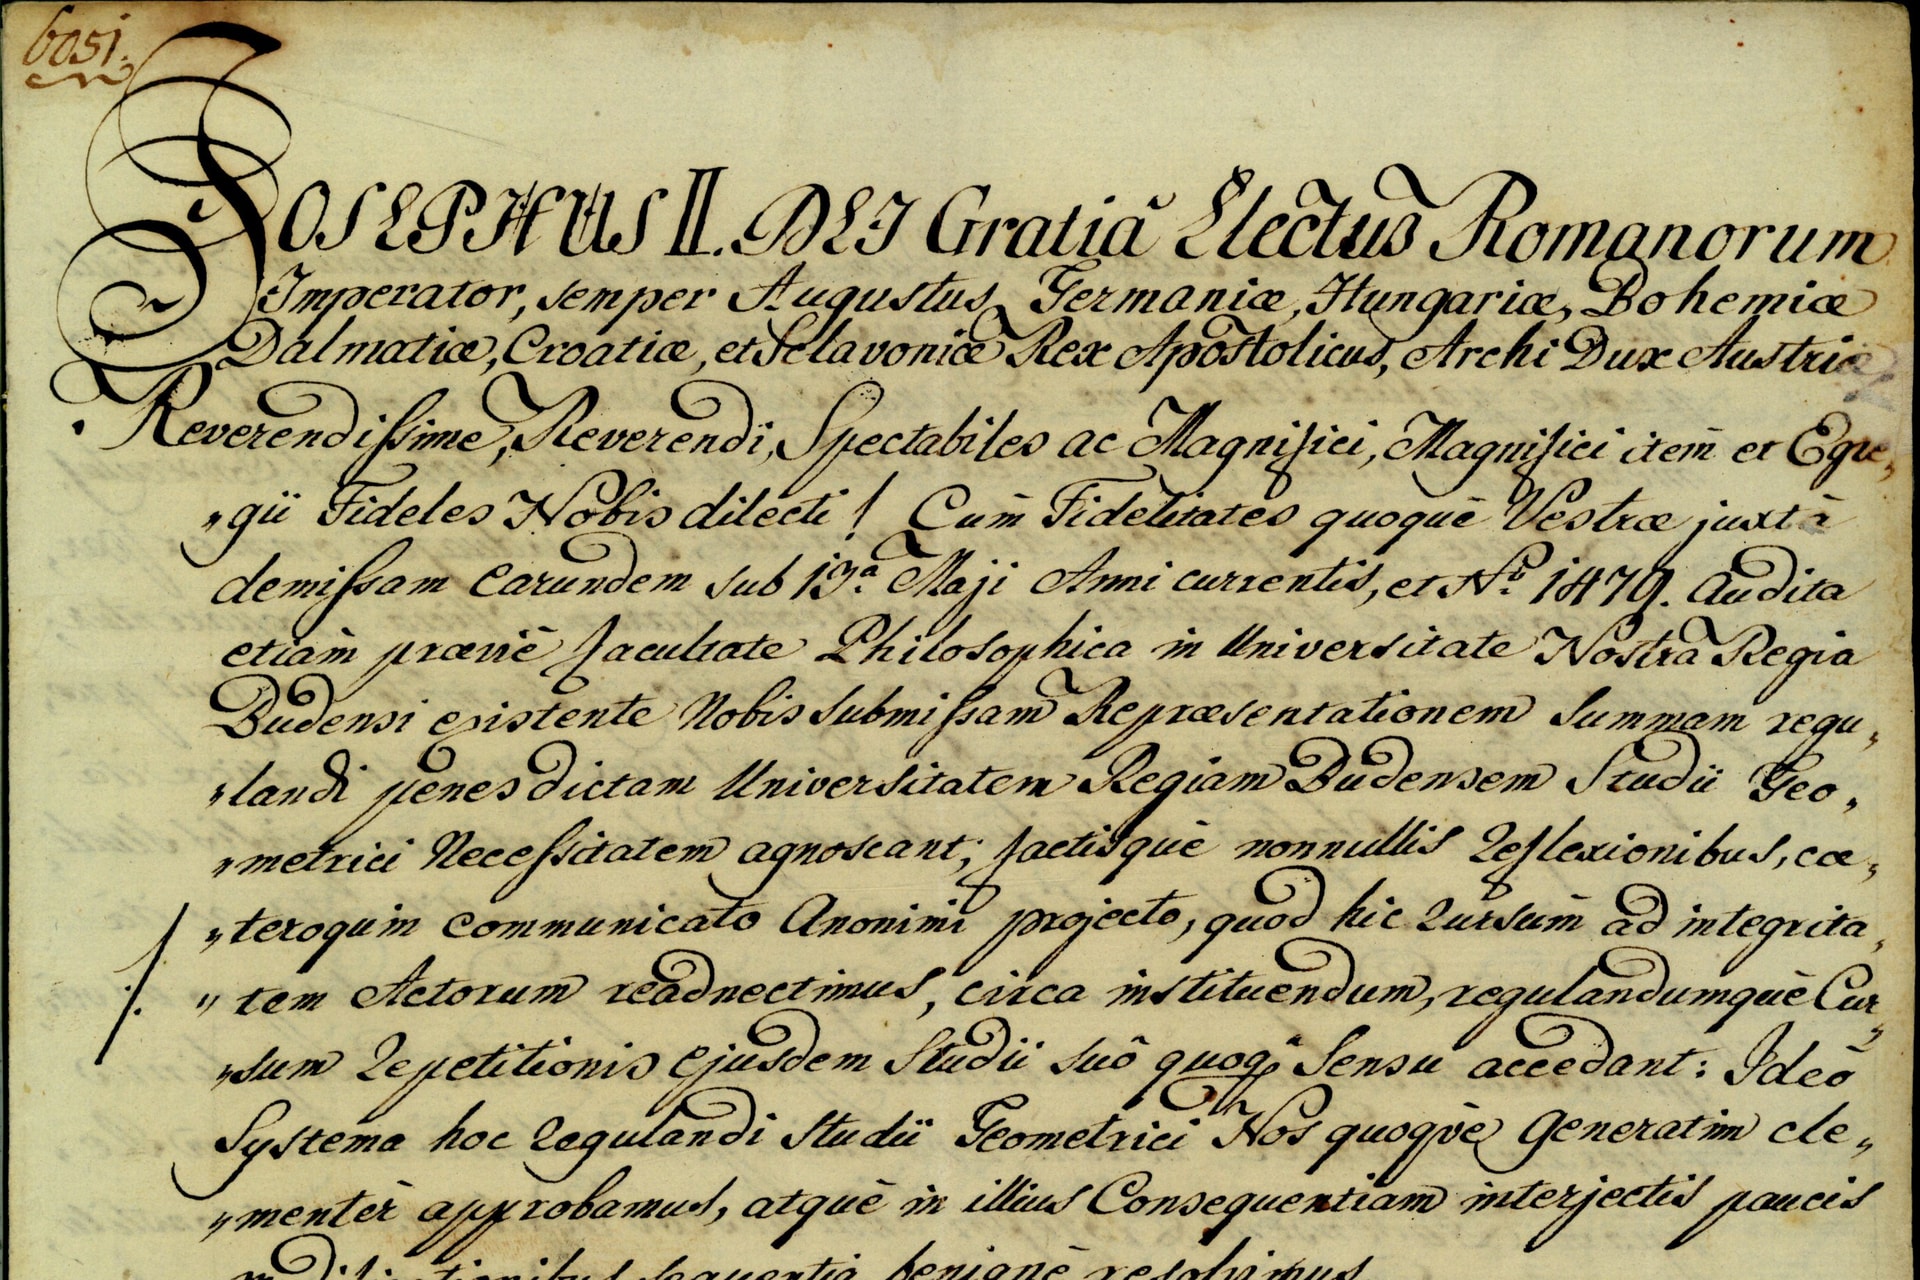 6051.
JOSEPHUS II. DEI Gratiâ Electus Romanorum
Imperator, semper Augustus, Germaniæ, Hungariæ, Bohemiæ
Dalmatiæ, Croatiæ, et Sclavoniæ Rex Apostolicus, Archi Dux Austriæ
Reverendissime, Reverendi, Spectabiles ac Magnifici, Magnifici item̄ et Egre„
„gii Fideles Nobis dilecti! Cum̄ Fidelitates quoquè Vestræ juxtà
demissam Earundem sub 13ª Maji Anni currentis, et Nº 1879. Audita
etiàm præviè facultate Philosophica in Universitate Nostra Regia
Budensi existente Nobis submissam Repræsentationem summam regu„
„landi penes dictam Universitatem Regiam Budensem Studii Geo„
„metrici Necessitatem agnoscant; factisquè nonnullis Reflexionibus, cæ„
„teroquin communicato Anonimi projecto, quod hic rursum̄ ad integrita„
„tem Actorum readnectimus, circa instituendum, regulandumquè Cur„
„sum Repetitionis Ejusdem Studii suô quoqꝫ Sensu accedant: Ideò
Systema hoc regulandi Studii Geometrici Nos quoquè Generatim cle„
„mentèr approbamus, atquè in illius Consequentiam interjectis paucis
modificationibus sequentia benignè resolvimus